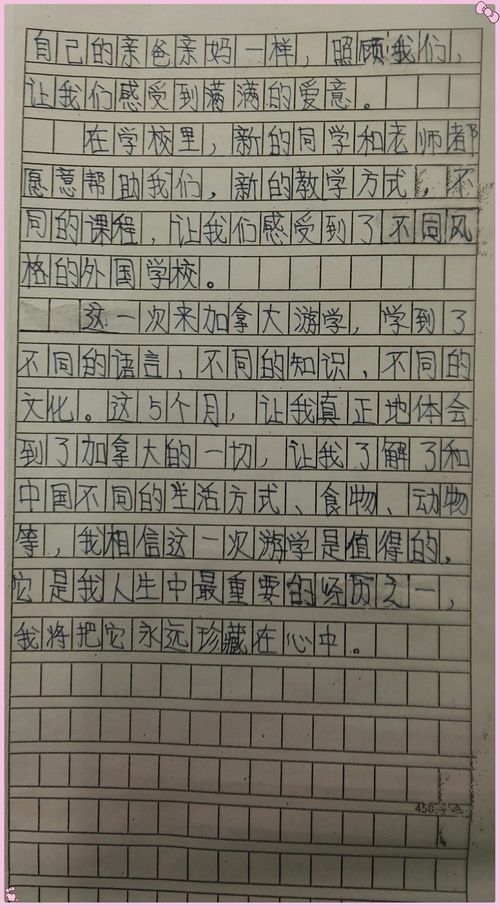 自己的亲爸亲妈一样，照顾我们，
让我们感受到满满的爱意。
在学校里，新的同学和老师都
愿意帮助我们，新的教学方式，不
同的课程，让我们感受到了不同风
格的外国学校。
这一次来加拿大游学，学到了
不同的语言，不同的知识，不同的
文化。这5个月，让我真正地体会
到了加拿大的一切，让我了解了和
中国不同的生活方式、食物、动物
等，我相信这一次游学是值得的，
它是我人生中最重要的经历之一，
我将把它永远珍藏在心中。
450